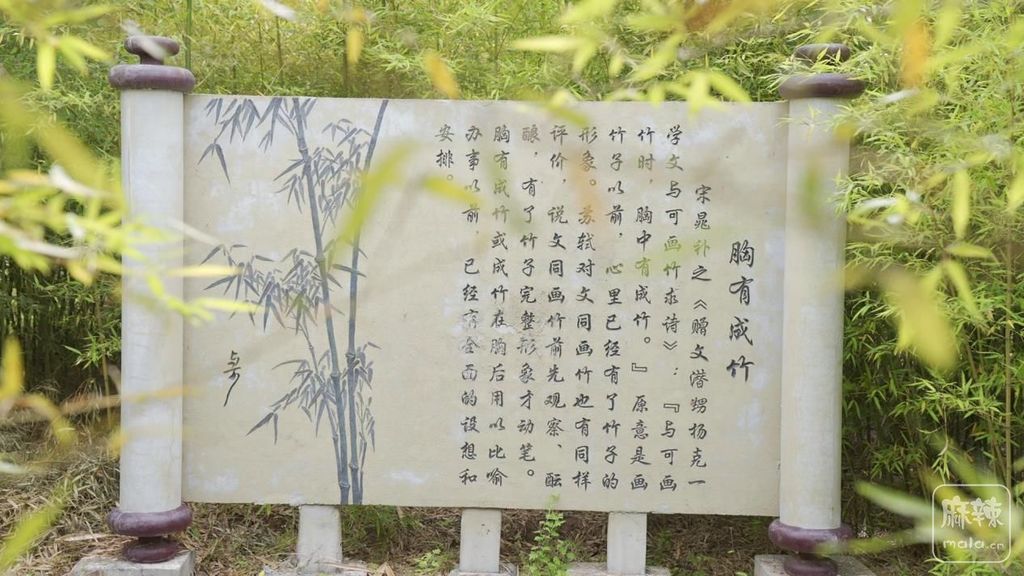 胸有成竹
宋晁补之《赠文潜甥扬克一
学文与可画竹求诗》：『与可画
竹时，胸中有成竹。』原意是画
竹子以前，心里已经有了竹子的
形象。苏轼对文同画竹也有同样
评价，说文同画竹前先观察、酝
酿，有了竹子完整形象才动笔。
胸有成竹或成竹在胸后用以比喻
办事以前，已经有全面的设想和
安排。
麻辣
mala.cn